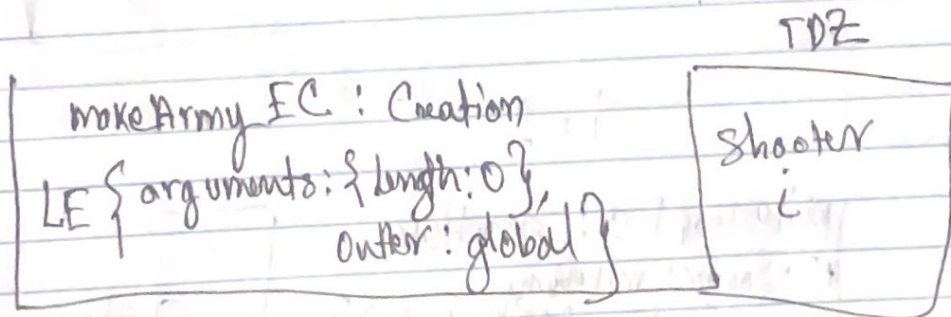 TDZ
makeArmy EC : Creation
LE { arguments: { length: 0 },
outter : global }
shooter
i